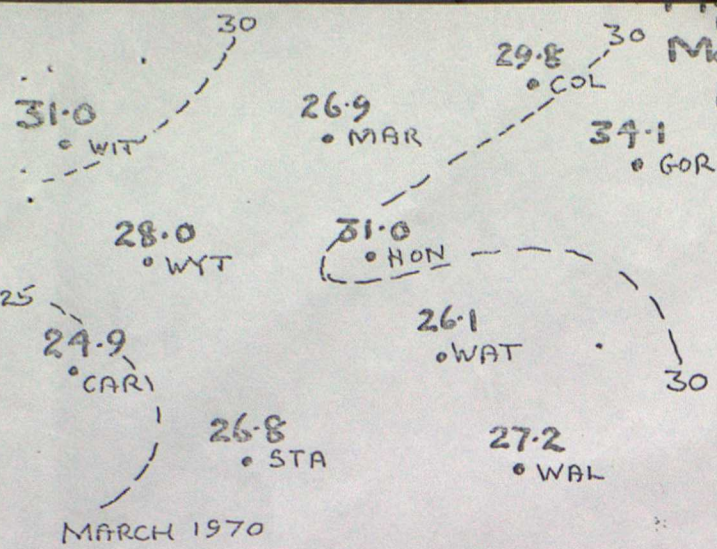 30
30
M
29.8
COL
31.0
WIT
26.9
MAR
34.1
GOR
28.0
WYT
31.0
HON
25
24.9
CARI
26.1
WAT
30
26.8
STA
27.2
WAL
MARCH 1970